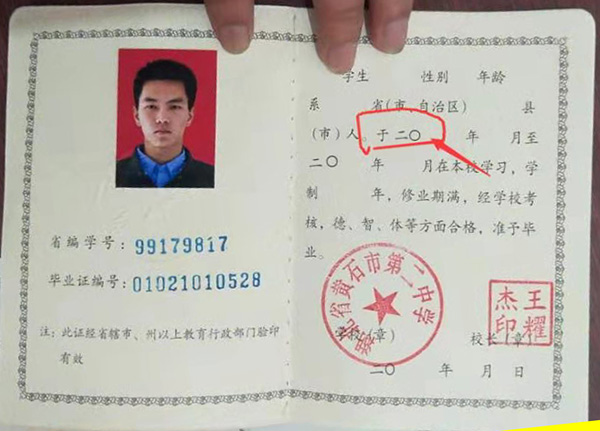 省编学号：99179817
毕业证编号：01021010528
注：此证经省辖市、州以上教育行政部门验印
有效
学生 性别 年龄
系 省(市、自治区) 县
(市)人。于二〇 年 月至
二〇 年 月在本校学习，学
制 年，修业期满，经学校考
核，德、智、体等方面合格，准予毕
业。
湖北省黄石市第二中学
王耀
杰印
学校(章) 校长(章)
二〇 年 月 日